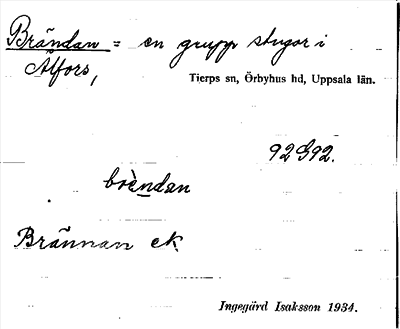 Brändan = en grupp stugor i
Alfors,
Tierps sn, Örbyhus hd, Uppsala län.
92G92.
brèndan
Brännan ek
Ingegärd Isaksson 1934.